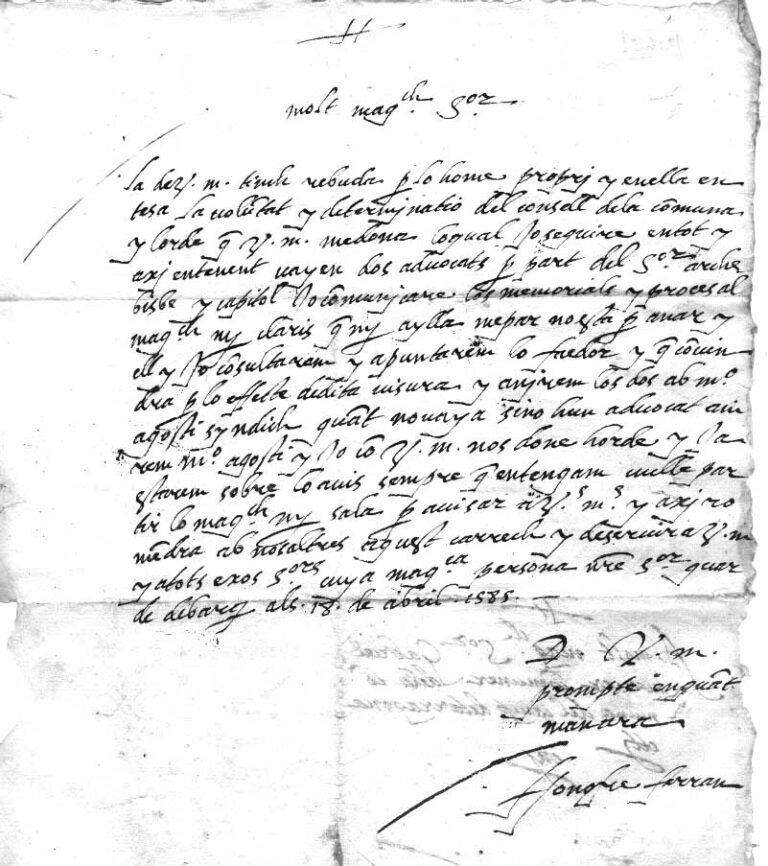 molt magch Sor
la de V. m. tinch rebuda p lo home propri y en ella en
tesa la volūtat y determinatio del consell dela comuna
y lorde q̄ V. m. me dona loqual Jo seguire en tot y
axi entenent vayen dos advocats p part del Sor arche
bisbe y capitol Jo comunicare los memorials y proces al
magch mj claris q̄ mj aylla me par no esta p anar y
ell y Jo cōsultarem y apuntarem lo faedor y q̄ cōvin
dra p lo effecte de dita visura y anirem los dos ab mo
agosti syndich quāt no vaya sino hun advocat ani
rem mo agosti y Jo co V. m. nos done horde y Ja
starem sobre lo avis sempre q̄ entengam vulle par
tir lo magch mj sala p avisar a V.s m.s y axi ro
mādra ab nosaltres aquest carrech y de servir a V. m.
y a tots exos Sors cuya magca persona nr̄e Sor guar
de de barqa als .18. de abril .1585.
D V. m.
prompte en quāt
mānara
Honofre ferran